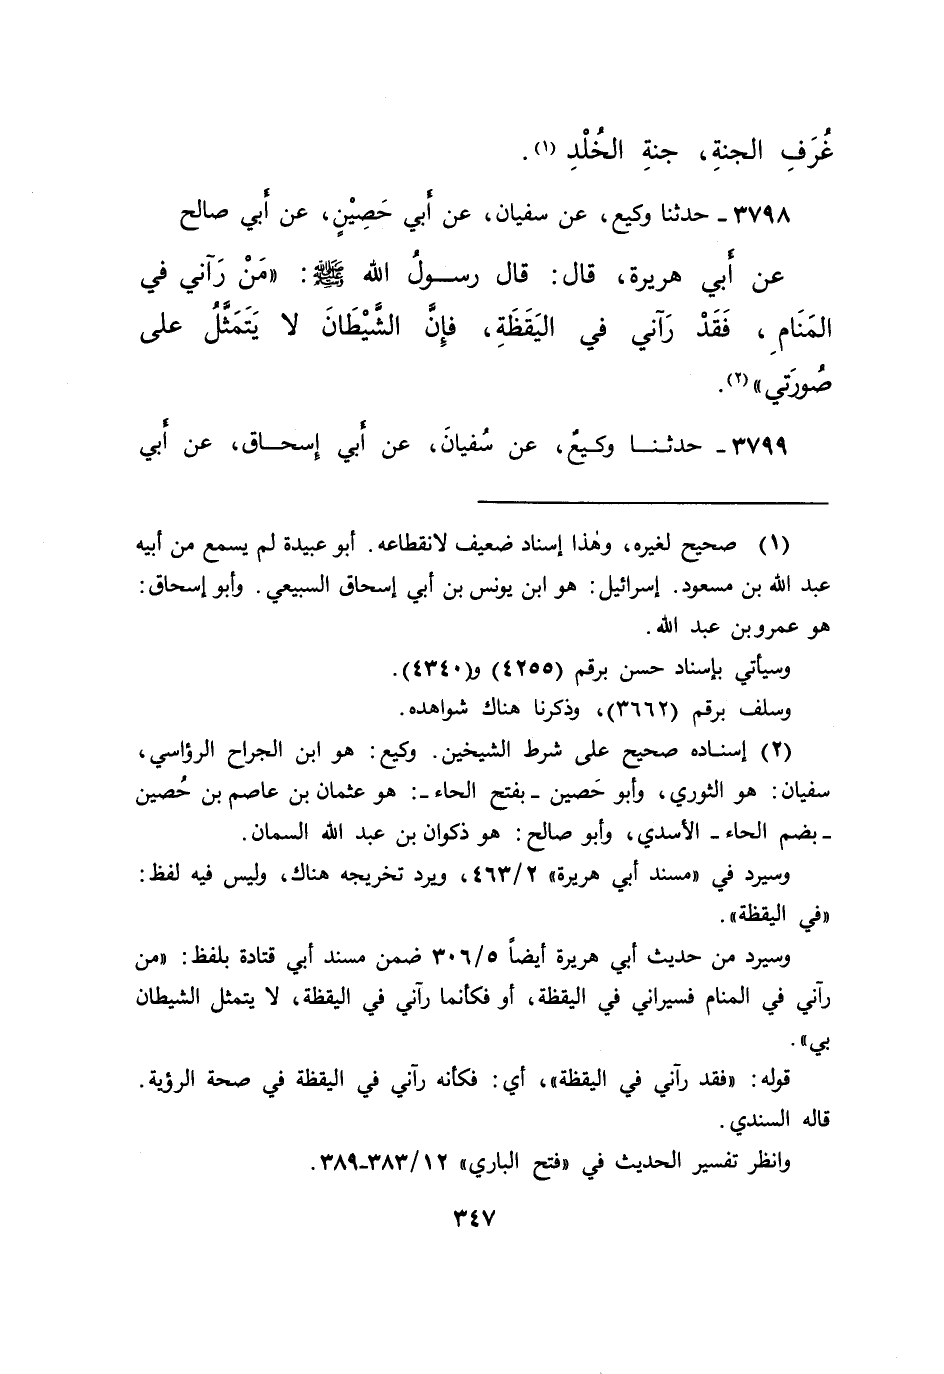 غُرَفِ الجنةِ، جنةِ الخُلْدِ (١).
٣٧٩٨ ـ حدثنا وكيع، عن سفيان، عن أَبي حَصِيْنٍ، عن أَبي صالح
عن أَبي هريرة، قال: قال رســولُ الله ﷺ: «مَنْ رَآني في
المَنَامِ، فَقَدْ رَآني في اليَقَظَةِ، فإِنَّ الشَّيْطَانَ لا يَتَمَثَّلُ على
صُورَتي» (٢).
٣٧٩٩ ـ حدثـنـــا وكـيـعٌ، عن سُفيانَ، عن أَبي إِسحـــاق، عن أَبي
(١) صحيح لغيره، وهٰذا إسناد ضعيف لانقطاعه. أبو عبيدة لم يسمع من أبيه
عبد الله بن مسعود. إسرائيل: هو ابن يونس بن أبي إسحاق السبيعي. وأبو إسحاق:
هو عمرو بن عبد الله.
وسيأتي بإسناد حسن برقم (٤٢٥٥) و(٤٣٤٠).
وسلف برقم (٣٦٦٢)، وذكرنا هناك شواهده.
(٢) إسنـاده صحيح على شرط الشيخين. وكيع: هو ابن الجراح الرؤاسي،
سفيان: هو الثوري، وأبو حَصين ـ بفتح الحاء ـ: هو عثمان بن عاصم بن حُصين
ـ بضم الحاء ـ الأسدي، وأبو صالح: هو ذكوان بن عبد الله السمان.
وسيرد في «مسند أبي هريرة» ٤٦٣/٢، ويرد تخريجه هناك، وليس فيه لفظ:
«في اليقظة».
وسيرد من حديث أبي هريرة أيضاً ٣٠٦/٥ ضمن مسند أبي قتادة بلفظ: «من
رآني في المنام فسيراني في اليقظة، أو فكأنما رآني في اليقظة، لا يتمثل الشيطان
بي».
قوله: «فقد رآني في اليقظة»، أي: فكأنه رآني في اليقظة في صحة الرؤية.
قاله السندي.
وانظر تفسير الحديث في «فتح الباري» ٣٨٣/١٢ـ٣٨٩.
٣٤٧